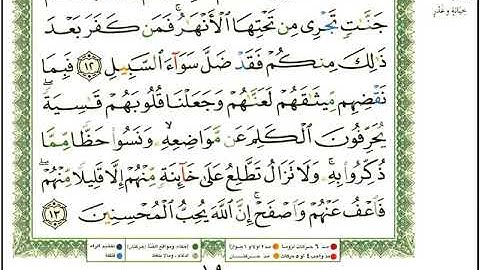 جَنَّٰتٍ تَجْرِى مِن تَحْتِهَا ٱلْأَنْهَٰرُ ۚ فَمَن كَفَرَ بَعْدَ
ذَٰلِكَ مِنكُمْ فَقَدْ ضَلَّ سَوَآءَ ٱلسَّبِيلِ ١٢ فَبِمَا
نَقْضِهِم مِّيثَٰقَهُمْ لَعَنَّٰهُمْ وَجَعَلْنَا قُلُوبَهُمْ قَٰسِيَةً ۖ
يُحَرِّفُونَ ٱلْكَلِمَ عَن مَّوَاضِعِهِۦ ۙ وَنَسُوا۟ حَظًّا مِّمَّا
ذُكِّرُوا۟ بِهِۦ ۚ وَلَا تَزَالُ تَطَّلِعُ عَلَىٰ خَآئِنَةٍ مِّنْهُمْ إِلَّا قَلِيلًا مِّنْهُمْ ۖ
فَٱعْفُ عَنْهُمْ وَٱصْفَحْ ۚ إِنَّ ٱللَّهَ يُحِبُّ ٱلْمُحْسِنِينَ ١٣